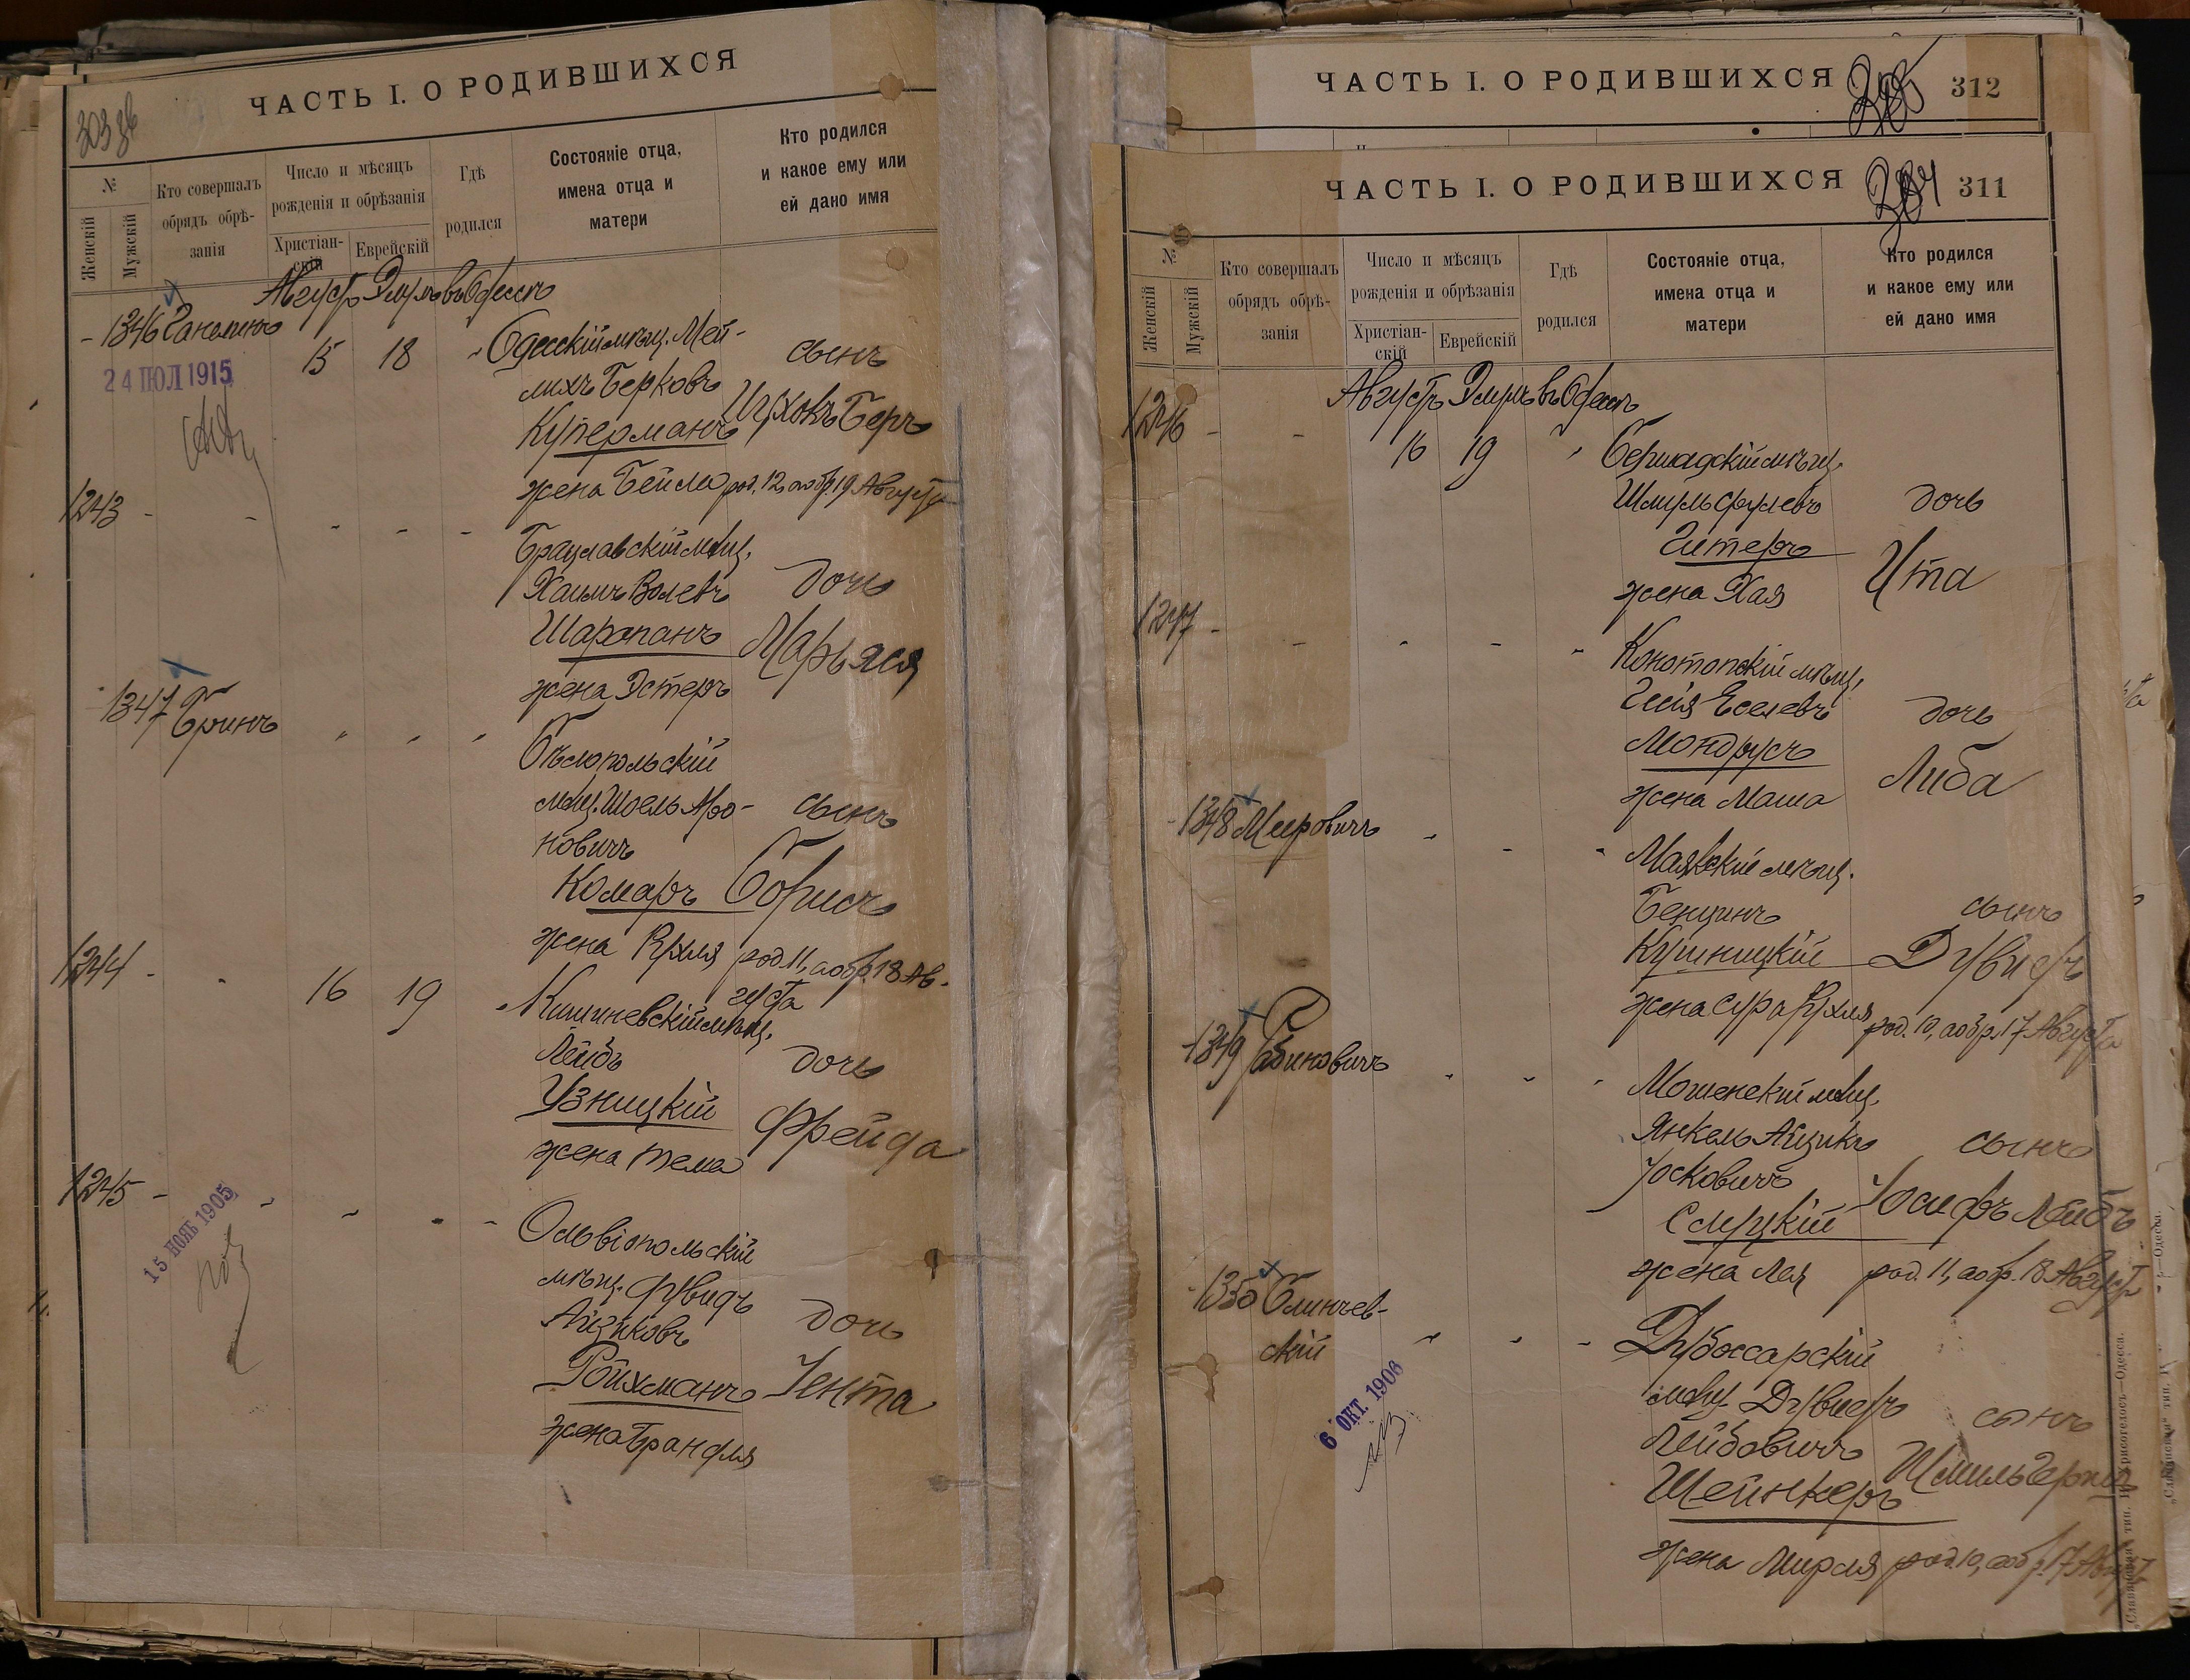 ЧАСТЬ I. О РОДИВШИХСЯ
№
Женскій
Мужскій
Кто совершалъ
обрядъ обрѣ-
занія
Число и мѣсяцъ
рожденія и обрѣзанія
Христіан-
скій
Еврейскій
Гдѣ
родился
Состояніе отца,
имена отца и
матери
Кто родился
и какое ему или
ей дано имя
Августъ Элулъ въ Одессѣ
1346
15 18 Одесскій мѣщ. Мей-
лихъ Берковъ
Куперманъ
жена Бейла
сынъ
Ицхокъ Беръ
род. 12, а обр. 19 Августа
24 ІЮЛ 1915
1243
Брацлавскій мѣщ.
Хаимъ Волевъ
Шарапанъ
жена Эстеръ
дочь
Марьяся
1347 Гринъ
Бѣлопольскій
мѣщ. Шоель Аро-
новичъ
Комаръ
жена Рухля
сынъ
Борисъ
род. 11, а обр. 18 Ав-
густа
1244
16 19 Кишиневскій мѣщ.
Лейбъ
Узницкій
жена Тема
дочь
Фрейда
1245
15 НОЯБ 1905
Ольвіопольскій
мѣщ. Дувидъ
Айзиковъ
Ройхманъ
жена Брандля
дочь
Іента
ЧАСТЬ I. О РОДИВШИХСЯ
312
ЧАСТЬ I. О РОДИВШИХСЯ
311
№
Женскій
Мужскій
Кто совершалъ
обрядъ обрѣ-
занія
Число и мѣсяцъ
рожденія и обрѣзанія
Христіан-
скій
Еврейскій
Гдѣ
родился
Состояніе отца,
имена отца и
матери
Кто родился
и какое ему или
ей дано имя
Августъ Элулъ въ Одессѣ
1246
16 19 Бершадскій мѣщ.
Шмуль Срулевъ
Гитеръ
жена Хая
дочь
Ита
1247
Конотопскій мѣщ.
Еселевъ
Мондрусъ
жена Маша
дочь
Либа
1348 Мировичъ
Маякскій мѣщ.
Бенцинъ
Кушницкій
жена Сура Рухля
сынъ
Дувидъ
род. 10, а обр. 17 Августа
1349 Рабиновичъ
Мошенскій мѣщ.
Янкель Айзикъ
Іосковичъ
Слуцкій
жена Лея
сынъ
Іосифъ Лейбъ
род. 11, а обр. 18 Август
1350 Блинчев-
скій
6 ОКТ. 1906
Дубоссарскій
мѣщ. Дувидъ
Лейбовичъ
Шейнкеръ
жена Мирля
сынъ
Шмиль Герш
род. 10, а обр. 17 Август